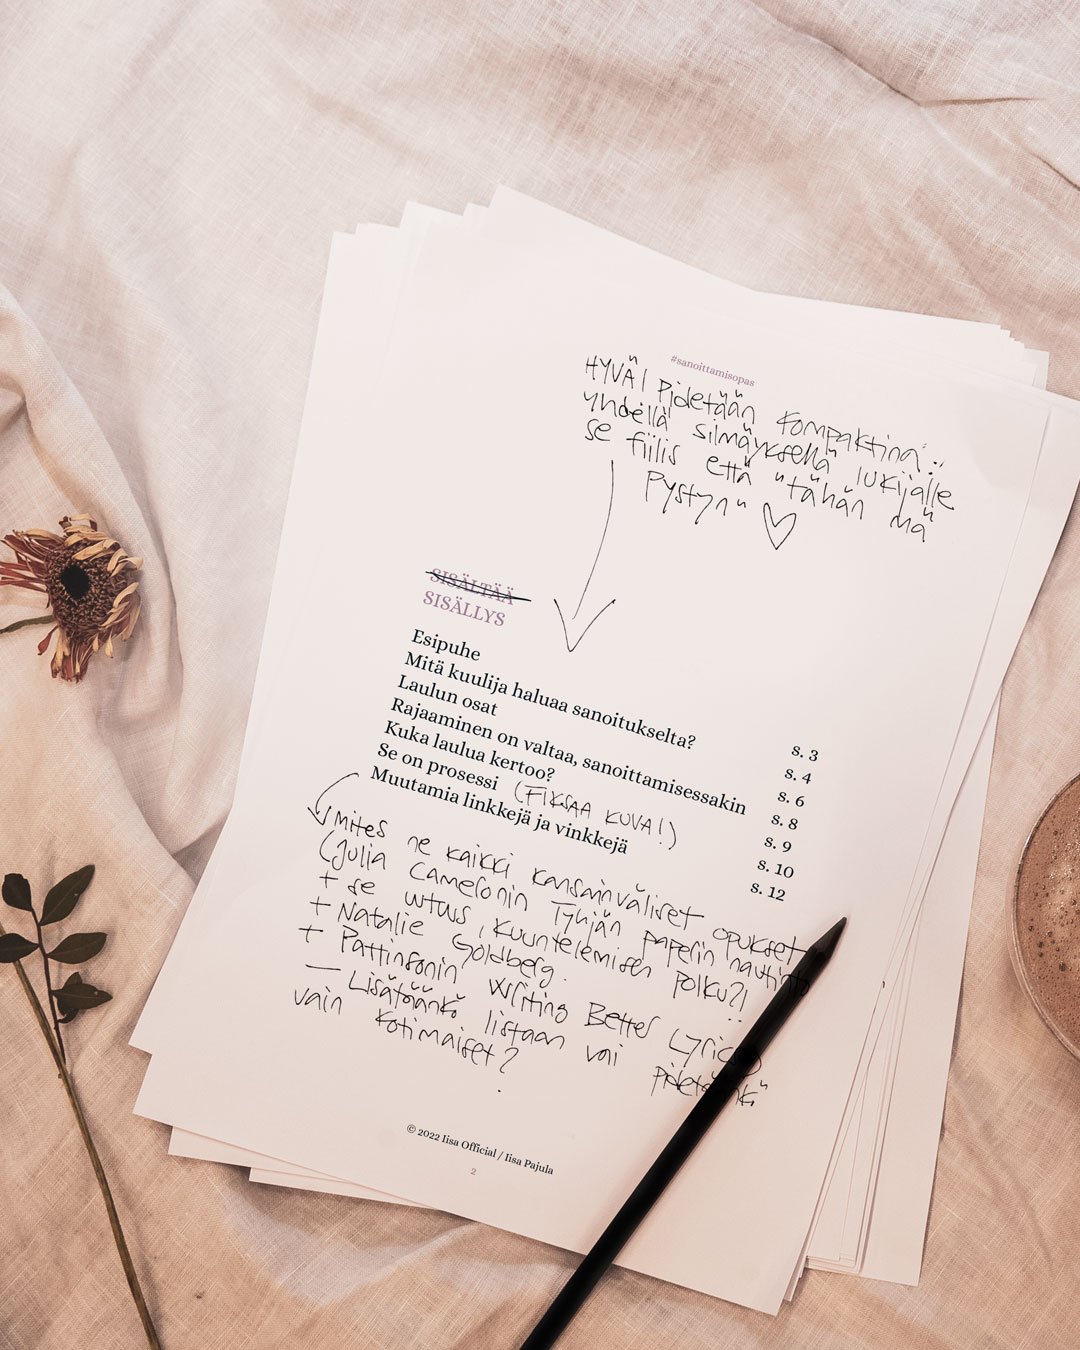 #sanoittamisopas
HYVÄ! Pidetään kompaktina:
yhdellä silmäyksellä lukijalle
se fiilis että "tähän mä
pystyn" ♡
SISÄLTÄÄ
SISÄLLYS
Esipuhe s. 3
Mitä kuulija haluaa sanoitukselta? s. 4
Laulun osat s. 6
Rajaaminen on valtaa, sanoittamisessakin s. 8
Kuka laulua kertoo? s. 9
Se on prosessi (FIKSAA KUVA!) s. 10
Muutamia linkkejä ja vinkkejä s. 12
Mites ne kaikki kansainväliset opukset
(Julia Cameronin Tyhjän paperin nautinto
+ se uutuus, Kuuntelemisen polku?!
+ Natalie Goldberg.
+ Pattinsonin Writing Better Lyrics)
— Lisätäänkö listaan vai pidetäänkö
vain kotimaiset?
© 2022 Iisa Official / Iisa Pajula
2